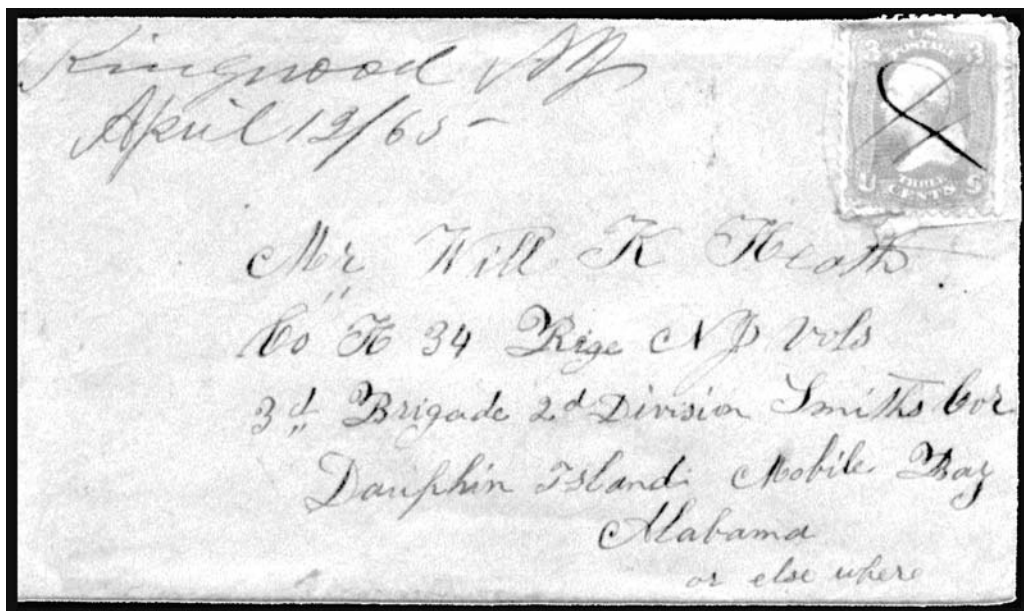 Kingwood NJ
April 12/65
U.S.
POSTAGE
3 3
THREE
CENTS
U S
Mr Will K Heath
Co H 34 Rige NJ Vols
3d Brigade 2d Division Smiths Cor
Dauphin Island Mobile Bay
Alabama
or else where